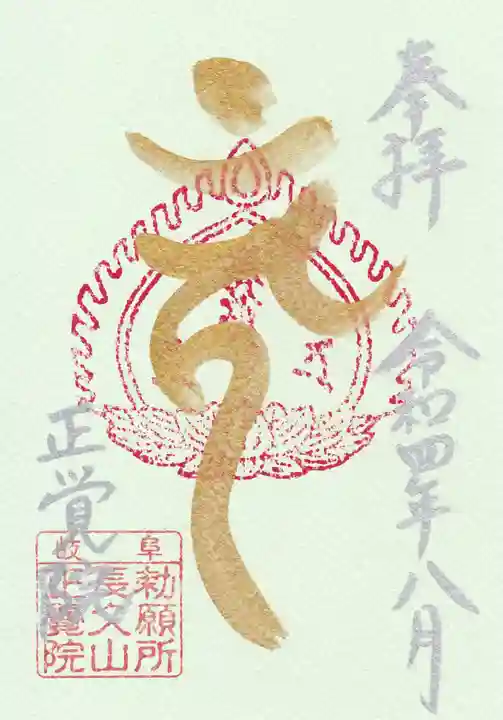 奉拝
令和四年八月
正覚院
岐阜
勅願所
長久山
正覚院